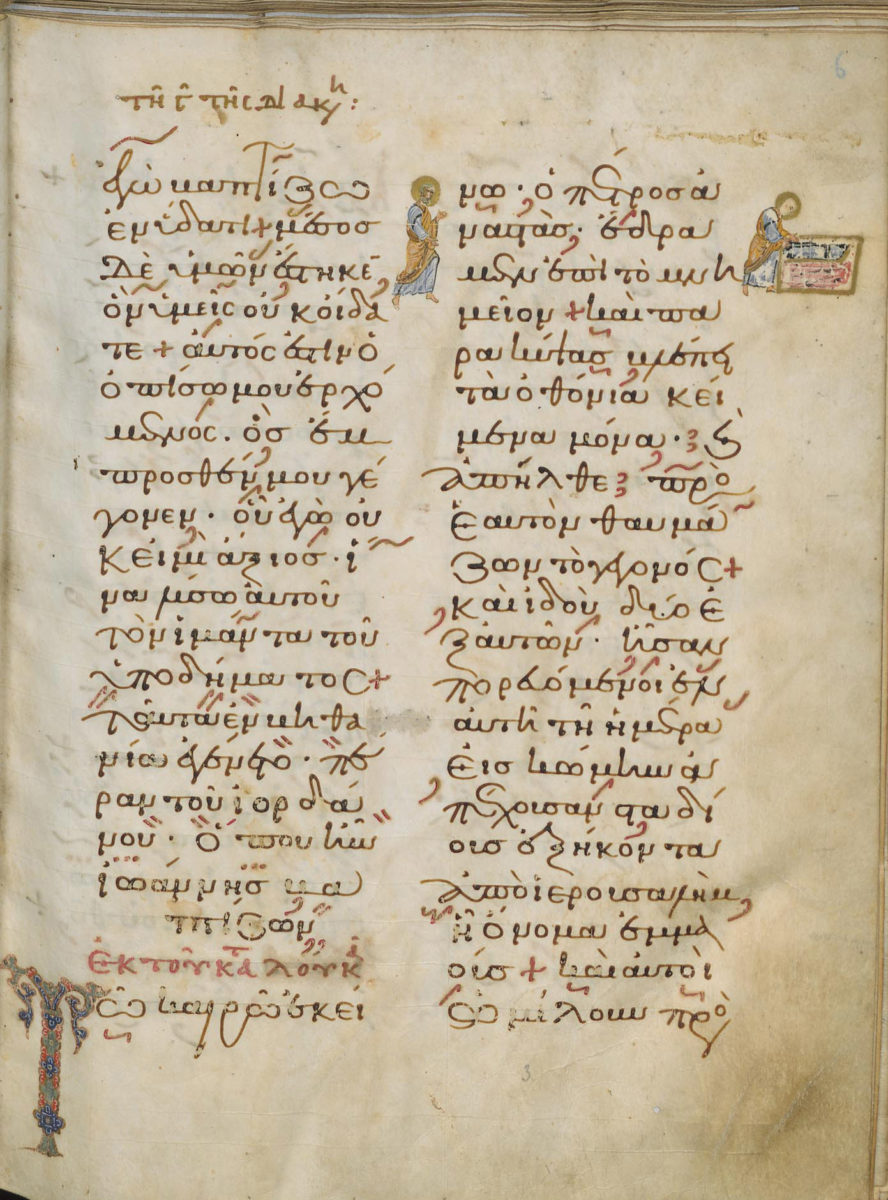 τῆ γ̄ τῆς διακη:
ἐγὼ βαπτίζω
ἐν ὕδατι + μέσος
δὲ ὑμῶν ἕστηκε̄
ὃν ὑμεῖς οὐκ οἴδα
τε + αὐτός ἐστιν ὁ
ὀπίσω μου ἐρχό
μενός. ὃς ἔμ
προσθέν μου γέ
γονεν · οὗ ἐγὼ οὐ
κ εἰμὶ ἄξιος · ἵ
να λύσω αὐτοῦ
τὸν ἱμάντα τοῦ
ὑποδήματος +
ταῦτα ἐν βηθα
νία ἐγένετο · πέ
ραν τοῦ ἰορδά
νου · Ὅπου ἦν
ἰωάννης βα
πτίζων
Ἐκ τοῦ κατὰ λουκ
Τῶ καιρῶ ἐκεί
νω · ὁ πέτρος ἀ
ναστὰς · ἔδρα
μεν ἐπὶ τὸ μνη
μεῖον + καὶ πα
ρακύψας βλέπει
τὰ ὀθόνια κεί
μενα μόνα · καὶ
ἀπῆλθε πρὸ
ἑαυτὸν θαυμά
ζων τὸ γεγονός +
καὶ ἰδοὺ δύο ἐ
ξ αὐτῶν · ἦσαν
πορευόμενοι ἐν
αὐτῆ τῆ ἡμέρα
εἰς κώμην ἀ
πέχουσαν σταδί
ους ἑξήκοντα
ἀπὸ ἱερουσαλὴμ
ἧ ὄνομα ἐμμα
ούς + καὶ αὐτοὶ
ὡμίλουν πρὸ
6
3